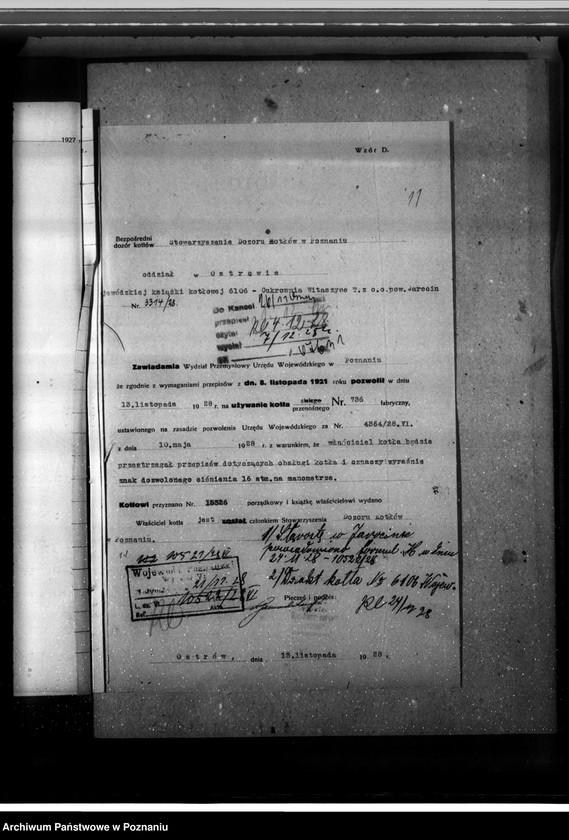 1927
Wzór D.
11
Bezpośredni
dozór kotłów Stowarzyszenie Dozoru Kotłów w Poznaniu
oddział w Ostrowie
wódzkiej książki kotłowej 6106 - Cukrownia Witaszyce T.z o.o.pow.Jarocin
Nr. 3314/28.
Do Kancel
przepisał 4.12.28
czytał
wysłał 7/12.28
Zawiadamia Wydział Przemysłowy Urzędu Wojewódzkiego w Poznaniu
że zgodnie z wymaganiami przepisów z dn. 8. listopada 1921 roku pozwolił w dniu
13.listopada 1928 r. na używanie kotła stałego przenośnego Nr. 736 fabryczny,
ustawionego na zasadzie pozwolenia Urzędu Wojewódzkiego za Nr. 4364/28.VI.
z dnia 10.maja 1928 r. z warunkiem, że właściciel kotła będzie
przestrzegał przepisów dotyczących obsługi kotła i oznaczy wyraźnie
znak dozwolonego ciśnienia 16 atm.na manometrze.
Kotłowi przyznano Nr. 15526 porządkowy i książkę właścicielowi wydano
Właściciel kotła jest został członkiem Stowarzyszenia Dozoru Kotłów
w Poznaniu.
1/ Starostę w Jarocinie
powiadomiono formul. K w dniu
27.11.28 - 10522/28
2/ Dzakt kotła No 6106 Wojew.
Wojew
21/11.28
10522/28 VI
L. dz.
Ref.
Pieczęć i podpis:
24/11 28
Ostrów, dnia 13.listopada 1928 r.
Archiwum Państwowe w Poznaniu